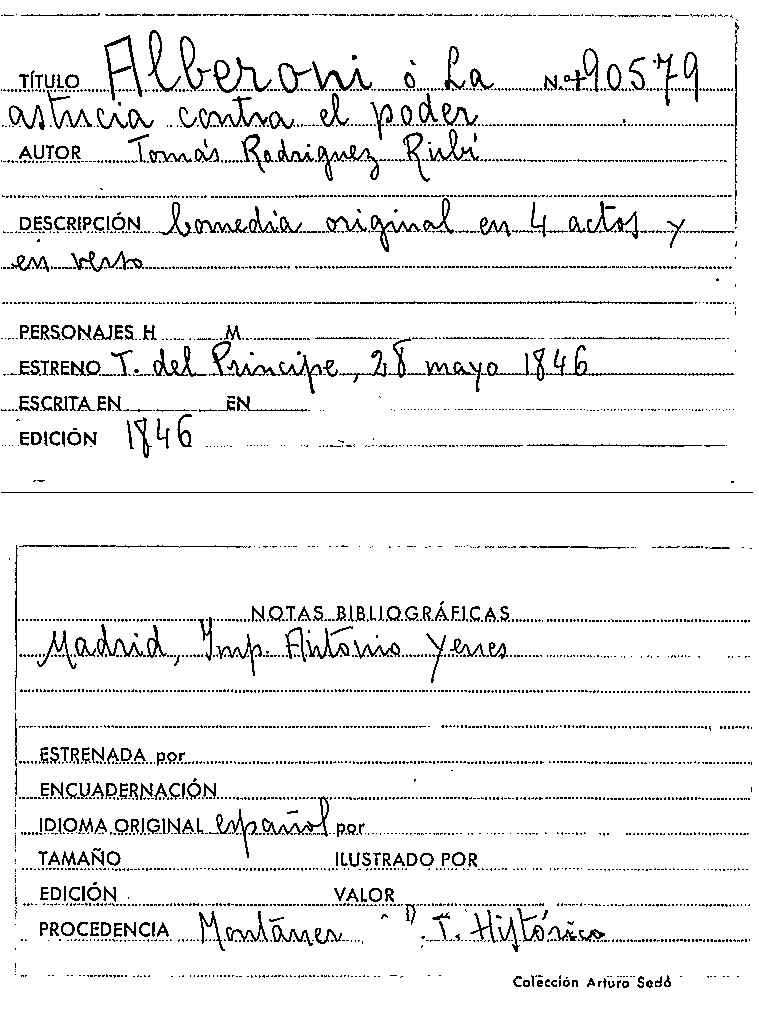 TÍTULO Alberoni ó La N.º 90579
astucia contra el poder
AUTOR Tomás Rodriguez Rubí
DESCRIPCIÓN Comedia original en 4 actos y
en verso
PERSONAJES H M
ESTRENO T. del Principe, 28 mayo 1846
ESCRITA EN EN
EDICIÓN 1846
NOTAS BIBLIOGRÁFICAS
Madrid, Imp. Antonio Yenes
ESTRENADA por
ENCUADERNACIÓN
IDIOMA ORIGINAL español por
TAMAÑO ILUSTRADO POR
EDICIÓN VALOR
PROCEDENCIA Montaner T. Histórico
Colección Arturo Sedó